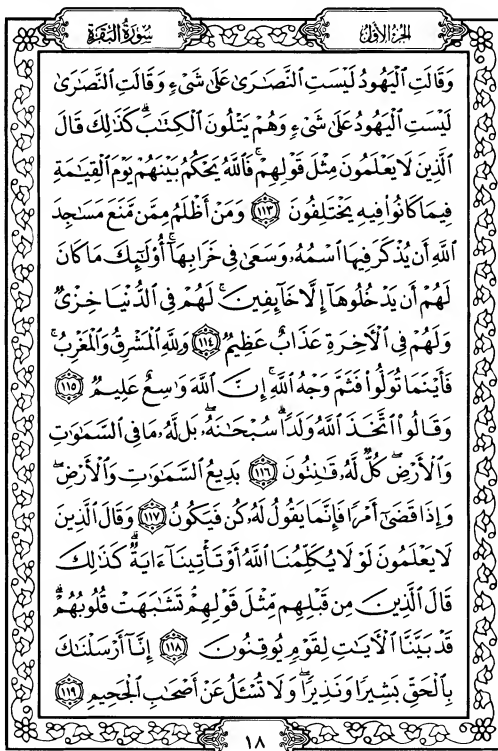 الجزء الأول
سورة البقرة
وَقَالَتِ ٱلۡيَهُودُ لَيۡسَتِ ٱلنَّصَٰرَىٰ عَلَىٰ شَيۡءٖ وَقَالَتِ ٱلنَّصَٰرَىٰ
لَيۡسَتِ ٱلۡيَهُودُ عَلَىٰ شَيۡءٖ وَهُمۡ يَتۡلُونَ ٱلۡكِتَٰبَۗ كَذَٰلِكَ قَالَ
ٱلَّذِينَ لَا يَعۡلَمُونَ مِثۡلَ قَوۡلِهِمۡۚ فَٱللَّهُ يَحۡكُمُ بَيۡنَهُمۡ يَوۡمَ ٱلۡقِيَٰمَةِ
فِيمَا كَانُواْ فِيهِ يَخۡتَلِفُونَ ١١٣ وَمَنۡ أَظۡلَمُ مِمَّن مَّنَعَ مَسَٰجِدَ
ٱللَّهِ أَن يُذۡكَرَ فِيهَا ٱسۡمُهُۥ وَسَعَىٰ فِي خَرَابِهَآۚ أُوْلَٰٓئِكَ مَا كَانَ
لَهُمۡ أَن يَدۡخُلُوهَآ إِلَّا خَآئِفِينَۚ لَهُمۡ فِي ٱلدُّنۡيَا خِزۡيٞ
وَلَهُمۡ فِي ٱلۡأٓخِرَةِ عَذَابٌ عَظِيمٞ ١١٤ وَلِلَّهِ ٱلۡمَشۡرِقُ وَٱلۡمَغۡرِبُۚ
فَأَيۡنَمَا تُوَلُّواْ فَثَمَّ وَجۡهُ ٱللَّهِۚ إِنَّ ٱللَّهَ وَٰسِعٌ عَلِيمٞ ١١٥
وَقَالُواْ ٱتَّخَذَ ٱللَّهُ وَلَدٗاۗ سُبۡحَٰنَهُۥۖ بَل لَّهُۥ مَا فِي ٱلسَّمَٰوَٰتِ
وَٱلۡأَرۡضِۖ كُلّٞ لَّهُۥ قَٰنِتُونَ ١١٦ بَدِيعُ ٱلسَّمَٰوَٰتِ وَٱلۡأَرۡضِۖ
وَإِذَا قَضَىٰٓ أَمۡرٗا فَإِنَّمَا يَقُولُ لَهُۥ كُن فَيَكُونُ ١١٧ وَقَالَ ٱلَّذِينَ
لَا يَعۡلَمُونَ لَوۡلَا يُكَلِّمُنَا ٱللَّهُ أَوۡ تَأۡتِينَآ ءَايَةٞۗ كَذَٰلِكَ
قَالَ ٱلَّذِينَ مِن قَبۡلِهِم مِّثۡلَ قَوۡلِهِمۡۘ تَشَٰبَهَتۡ قُلُوبُهُمۡۗ
قَدۡ بَيَّنَّا ٱلۡأٓيَٰتِ لِقَوۡمٖ يُوقِنُونَ ١١٨ إِنَّآ أَرۡسَلۡنَٰكَ
بِٱلۡحَقِّ بَشِيرٗا وَنَذِيرٗاۖ وَلَا تُسۡـَٔلُ عَنۡ أَصۡحَٰبِ ٱلۡجَحِيمِ ١١٩
١٨